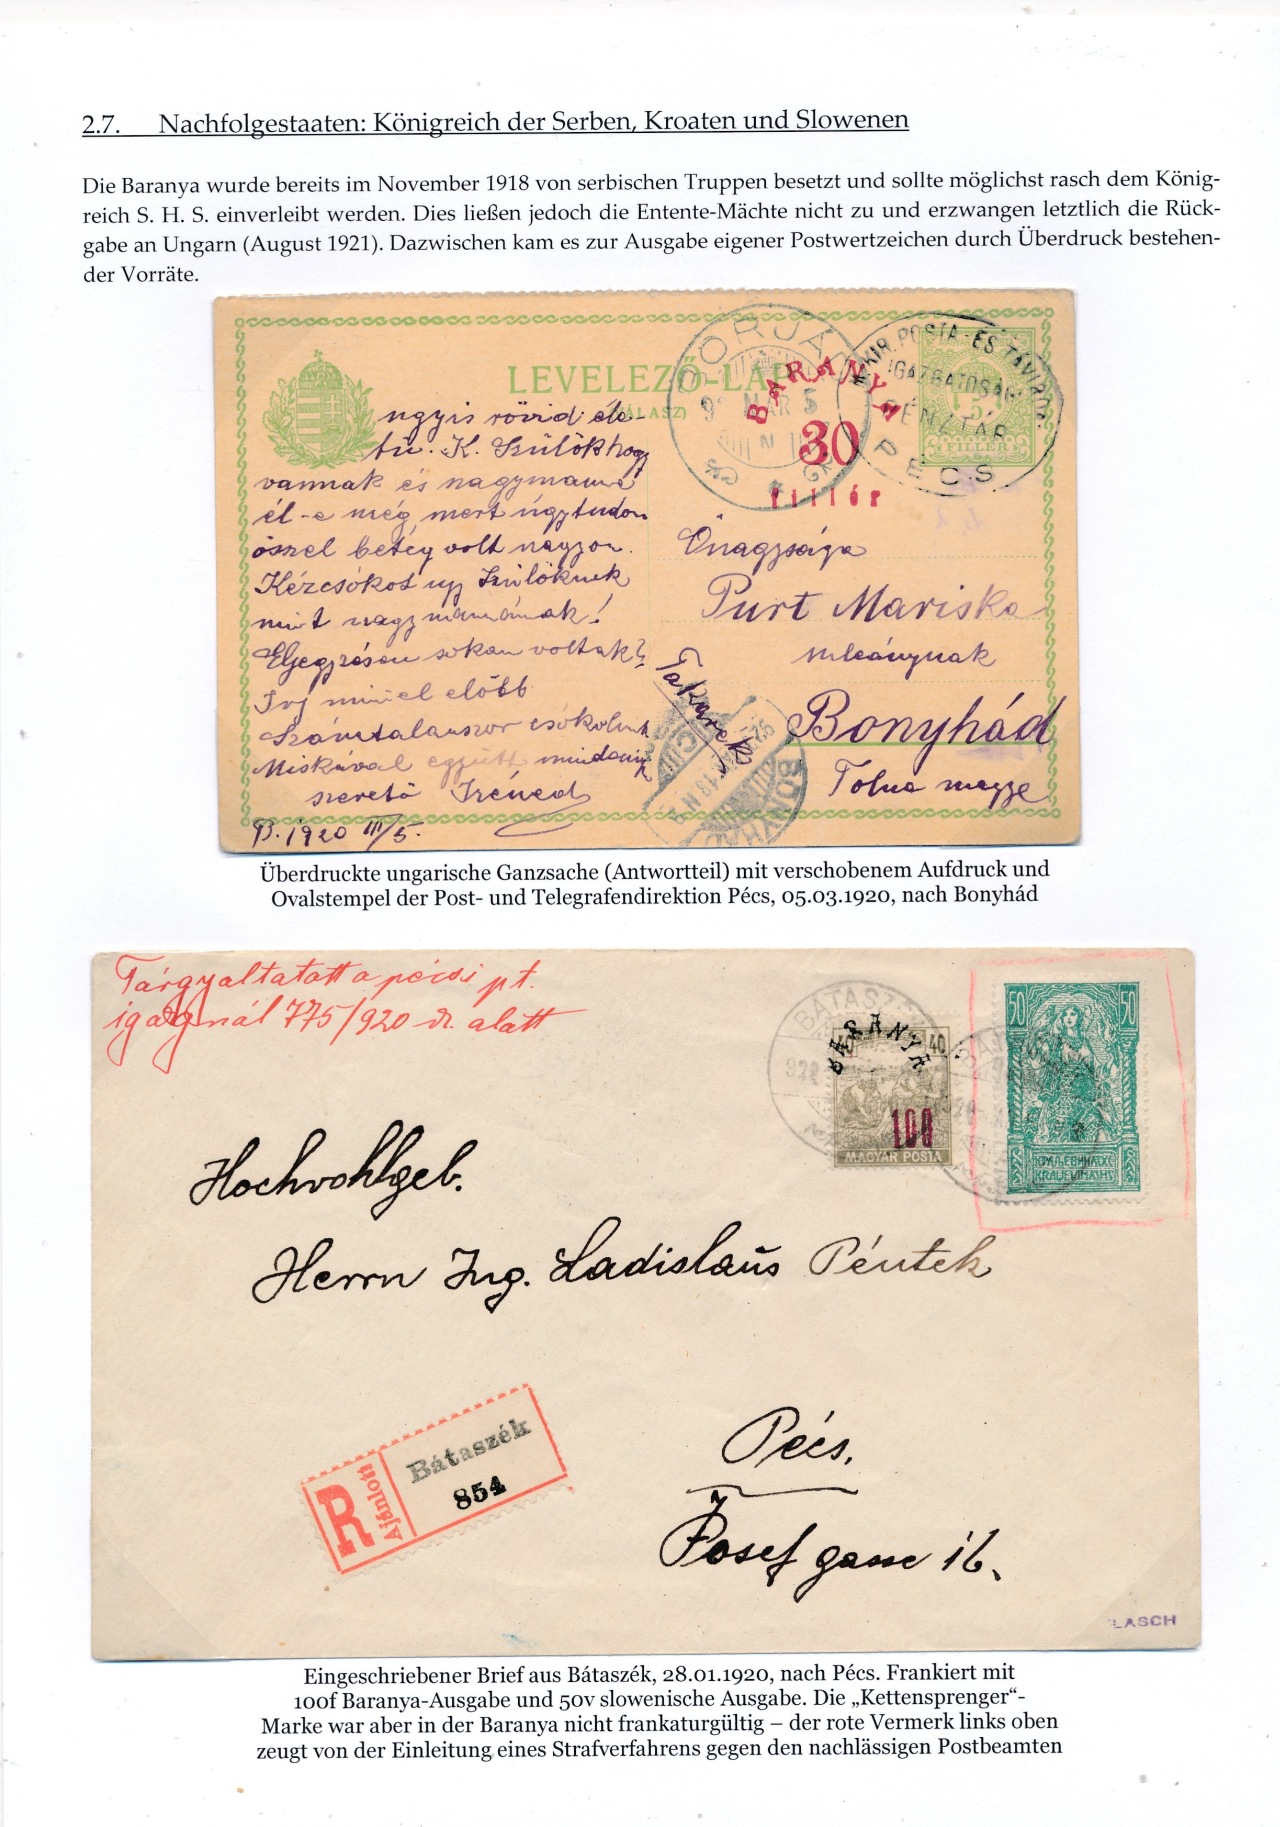 2.7. Nachfolgestaaten: Königreich der Serben, Kroaten und Slowenen
Die Baranya wurde bereits im November 1918 von serbischen Truppen besetzt und sollte möglichst rasch dem König-
reich S. H. S. einverleibt werden. Dies ließen jedoch die Entente-Mächte nicht zu und erzwangen letztlich die Rück-
gabe an Ungarn (August 1921). Dazwischen kam es zur Ausgabe eigener Postwertzeichen durch Überdruck bestehen-
der Vorräte.
LEVELEZŐ-LAP
BARANYA
30
fillér
M. KIR. POSTA- ÉS TÁVIRDA
IGAZGATÓSÁGI
PÉNZTÁR
PÉCS
FILLÉR
ugyis rövid éle-
tü. K. Szülők hogy
vannak és nagymama
él-e még mert úgy tudom
ősszel beteg volt nagyon.
Kézcsókot ugy Szülőknek
mint nagymamának!
Eljegyzésen sokan voltak?
Irj minél előbb
Számtalanszor csókolunk
Miskával együtt mindenkit
szerető Iréned
B. 1920 III/5.
Őnagysága
Purt Mariska
urleánynak
Bonyhád
Tolna megye
Takarék
BONYHÁD
Überdruckte ungarische Ganzsache (Antwortteil) mit verschobenem Aufdruck und
Ovalstempel der Post- und Telegrafendirektion Pécs, 05.03.1920, nach Bonyhád
Tárgyaltatott a pécsi pt.
igazgnál 775/920 sz. alatt
BÁTASZÉK
BARANYA
40 40
100
MAGYAR POSTA
50 50
КРАЉЕВИНА СХС
KRALJEVINA SHS
Hochwohlgeb.
Herrn Ing. Ladislaus Péntek
Pécs.
Josef gasse 16.
R Ajánlott
Bátaszék
854
FLASCH
Eingeschriebener Brief aus Bátaszék, 28.01.1920, nach Pécs. Frankiert mit
100f Baranya-Ausgabe und 50v slowenische Ausgabe. Die „Kettensprenger“-
Marke war aber in der Baranya nicht frankaturgültig – der rote Vermerk links oben
zeugt von der Einleitung eines Strafverfahrens gegen den nachlässigen Postbeamten